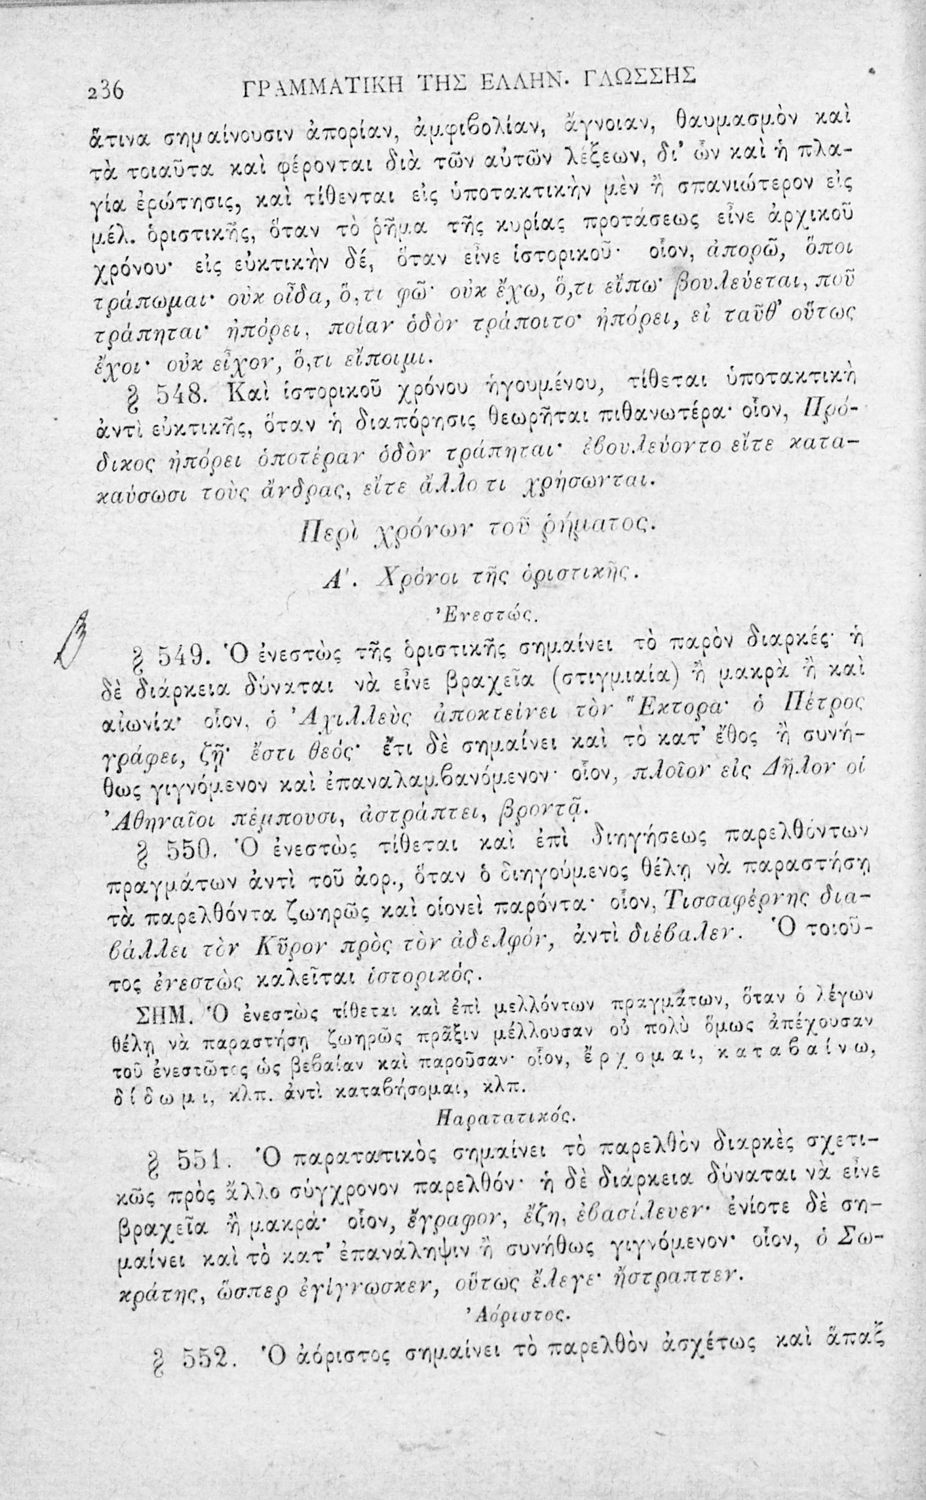 236 ΓΡΑΜΜΑΤΙΚΗ ΤΗΣ ΕΛΛΗΝ. ΓΛΩΣΣΗΣ
ἅτινα σημαίνουσιν ἀπορίαν, ἀμφιβολίαν, ἄγνοιαν, θαυμασμὸν καὶ
τὰ τοιαῦτα καὶ φέρονται διὰ τῶν αὐτῶν λέξεων, δι' ὧν καὶ ἡ πλα-
γία ἐρώτησις, καὶ τίθενται εἰς ὑποτακτικὴν μὲν ἢ σπανιώτερον εἰς
μέλ. ὁριστικῆς, ὅταν τὸ ῥῆμα τῆς κυρίας προτάσεως εἶνε ἀρχικοῦ
χρόνου· εἰς εὐκτικὴν δέ, ὅταν εἶνε ἱστορικοῦ· οἷον, ἀπορῶ, ὅποι
τράπωμαι· οὐκ οἶδα, ὅ,τι φῶ· οὐκ ἔχω, ὅ,τι εἴπω· βουλεύεται, ποῦ
τράπηται· ἠπόρει, ποίαν ὁδὸν τράποιτο· ἠπόρει, εἰ ταῦθ' οὕτως
ἔχοι· οὐκ εἶχον, ὅ,τι εἴποιμι.
§ 548. Καὶ ἱστορικοῦ χρόνου ἡγουμένου, τίθεται ὑποτακτικὴ
ἀντὶ εὐκτικῆς, ὅταν ἡ διαπόρησις θεωρῆται πιθανωτέρα· οἷον, Πρό-
δικος ἠπόρει ὁποτέραν ὁδὸν τράπηται· ἐβουλεύοντο εἴτε κατα-
καύσωσι τοὺς ἄνδρας, εἴτε ἄλλο τι χρήσωνται.
Περὶ χρόνων τοῦ ῥήματος.
Α'. Χρόνοι τῆς ὁριστικῆς.
Ἐνεστώς.
§ 549. Ὁ ἐνεστὼς τῆς ὁριστικῆς σημαίνει τὸ παρὸν διαρκές· ἡ
δὲ διάρκεια δύναται νὰ εἶνε βραχεῖα (στιγμιαία) ἢ μακρὰ ἢ καὶ
αἰωνία· οἷον, ὁ Ἀχιλλεὺς ἀποκτείνει τὸν Ἕκτορα· ὁ Πέτρος
γράφει, ζῇ· ἔστι θεός· ἔτι δὲ σημαίνει καὶ τὸ κατ' ἔθος ἢ συνή-
θως γιγνόμενον καὶ ἐπαναλαμβανόμενον· οἷον, πλοῖον εἰς Δῆλον οἱ
Ἀθηναῖοι πέμπουσι, ἀστράπτει, βροντᾷ.
§ 550. Ὁ ἐνεστὼς τίθεται καὶ ἐπὶ διηγήσεως παρελθόντων
πραγμάτων ἀντὶ τοῦ ἀορ., ὅταν ὁ διηγούμενος θέλῃ νὰ παραστήσῃ
τὰ παρελθόντα ζωηρῶς καὶ οἱονεὶ παρόντα· οἷον, Τισσαφέρνης δια-
βάλλει τὸν Κῦρον πρὸς τὸν ἀδελφόν, ἀντὶ διέβαλεν. Ὁ τοιοῦ-
τος ἐνεστὼς καλεῖται ἱστορικός.
ΣΗΜ. Ὁ ἐνεστὼς τίθεται καὶ ἐπὶ μελλόντων πραγμάτων, ὅταν ὁ λέγων
θέλῃ νὰ παραστήσῃ ζωηρῶς πρᾶξιν μέλλουσαν οὐ πολὺ ὅμως ἀπέχουσαν
τοῦ ἐνεστῶτος ὡς βεβαίαν καὶ παροῦσαν· οἷον, ἔρχομαι, καταβαίνω,
δίδωμι, κλπ. ἀντὶ καταβήσομαι, κλπ.
Παρατατικός.
§ 551. Ὁ παρατατικὸς σημαίνει τὸ παρελθὸν διαρκὲς σχετι-
κῶς πρὸς ἄλλο σύγχρονον παρελθόν· ἡ δὲ διάρκεια δύναται νὰ εἶνε
βραχεῖα ἢ μακρά· οἷον, ἔγραφον, ἔζη, ἐβασίλευεν· ἐνίοτε δὲ ση-
μαίνει καὶ τὸ κατ' ἐπανάληψιν ἢ συνήθως γιγνόμενον· οἷον, ὁ Σω-
κράτης, ὥσπερ ἐγίγνωσκεν, οὕτως ἔλεγε· ἤστραπτεν.
Ἀόριστος.
§ 552. Ὁ ἀόριστος σημαίνει τὸ παρελθὸν ἀσχέτως καὶ ἅπαξ